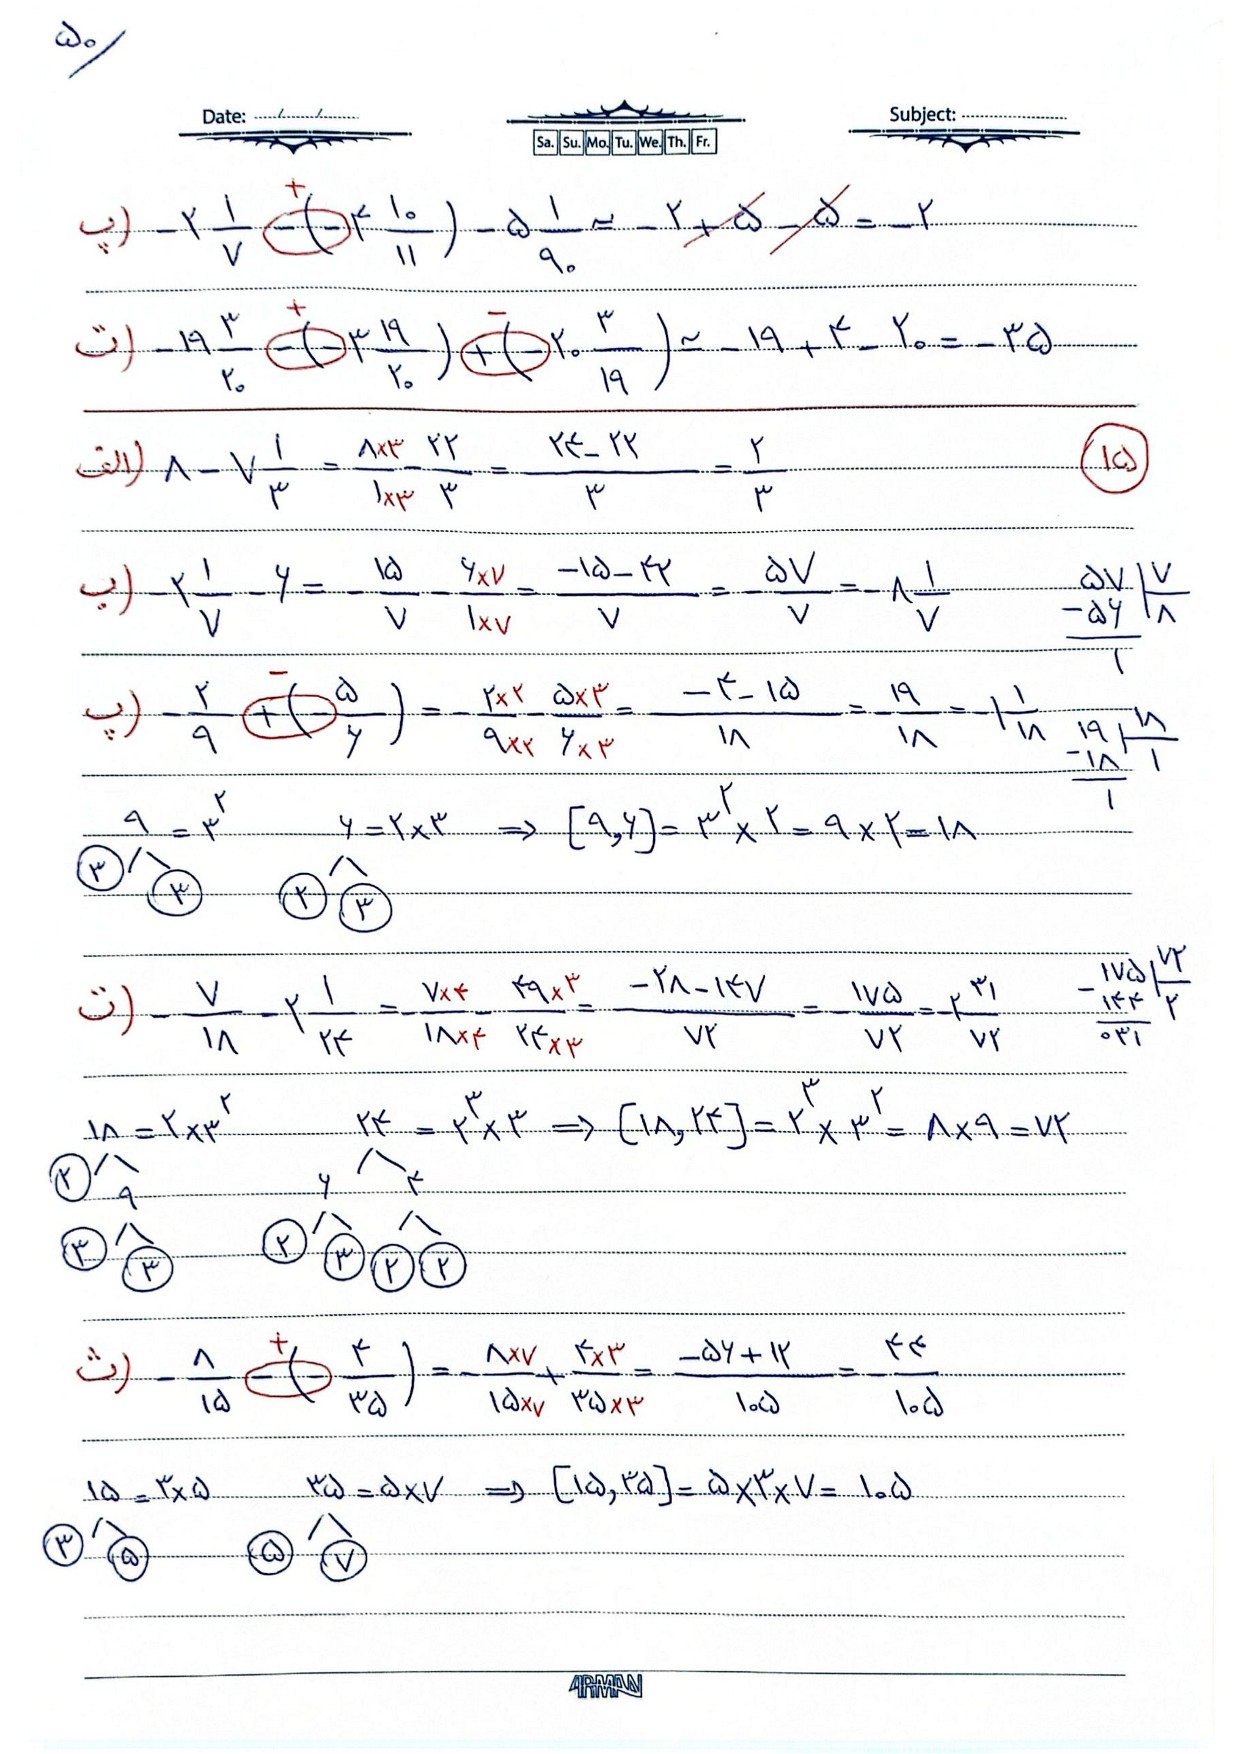 ۵۰/
Date: ..../..../....
Sa. Su. Mo. Tu. We. Th. Fr.
Subject: ....................
پ) -۲ ۱/۷ - (-۴ ۱۰/۱۱) - ۵ ۱/۹۰ ≈ -۲ + ۵ - ۵ = -۲
+
ت) -۱۹ ۳/۲۰ - (-۳ ۱۹/۲۰) + (-۲۰ ۳/۱۹) ≈ -۱۹ + ۴ - ۲۰ = -۳۵
+ -
۱۵
الف) ۸ - ۷ ۱/۳ = ۸×۳/۱×۳ - ۲۲/۳ = ۲۴-۲۲/۳ = ۲/۳
ب) -۲ ۱/۷ - ۶ = -۱۵/۷ - ۶×۷/۱×۷ = -۱۵-۴۲/۷ = -۵۷/۷ = -۸ ۱/۷
۵۷ | ۷
-۵۶ ۸
۱
پ) -۲/۹ + (-۵/۶) = -۲×۲/۹×۲ - ۵×۳/۶×۳ = -۴-۱۵/۱۸ = -۱۹/۱۸ = -۱ ۱/۱۸
-
۱۹ | ۱۸
-۱۸ ۱
۱
۹ = ۳^۲ ۶ = ۲×۳ ⇒ [۹,۶] = ۳^۲ × ۲ = ۹×۲ = ۱۸
۳ ۳ ۲ ۳
ت) -۷/۱۸ - ۲ ۱/۲۴ = -۷×۴/۱۸×۴ - ۴۹×۳/۲۴×۳ = -۲۸-۱۴۷/۷۲ = -۱۷۵/۷۲ = -۲ ۳۱/۷۲
۱۷۵ | ۷۲
-۱۴۴ ۲
۰۳۱
۱۸ = ۲×۳^۲ ۲۴ = ۲^۳×۳ ⇒ [۱۸,۲۴] = ۲^۳ × ۳^۲ = ۸×۹ = ۷۲
۲ ۹ ۶ ۴
۳ ۳ ۲ ۳ ۲ ۲
ث) -۸/۱۵ - (-۴/۳۵) = -۸×۷/۱۵×۷ + ۴×۳/۳۵×۳ = -۵۶+۱۲/۱۰۵ = -۴۴/۱۰۵
+
۱۵ = ۳×۵ ۳۵ = ۵×۷ ⇒ [۱۵,۳۵] = ۵×۳×۷ = ۱۰۵
۳ ۵ ۵ ۷
ARMAN